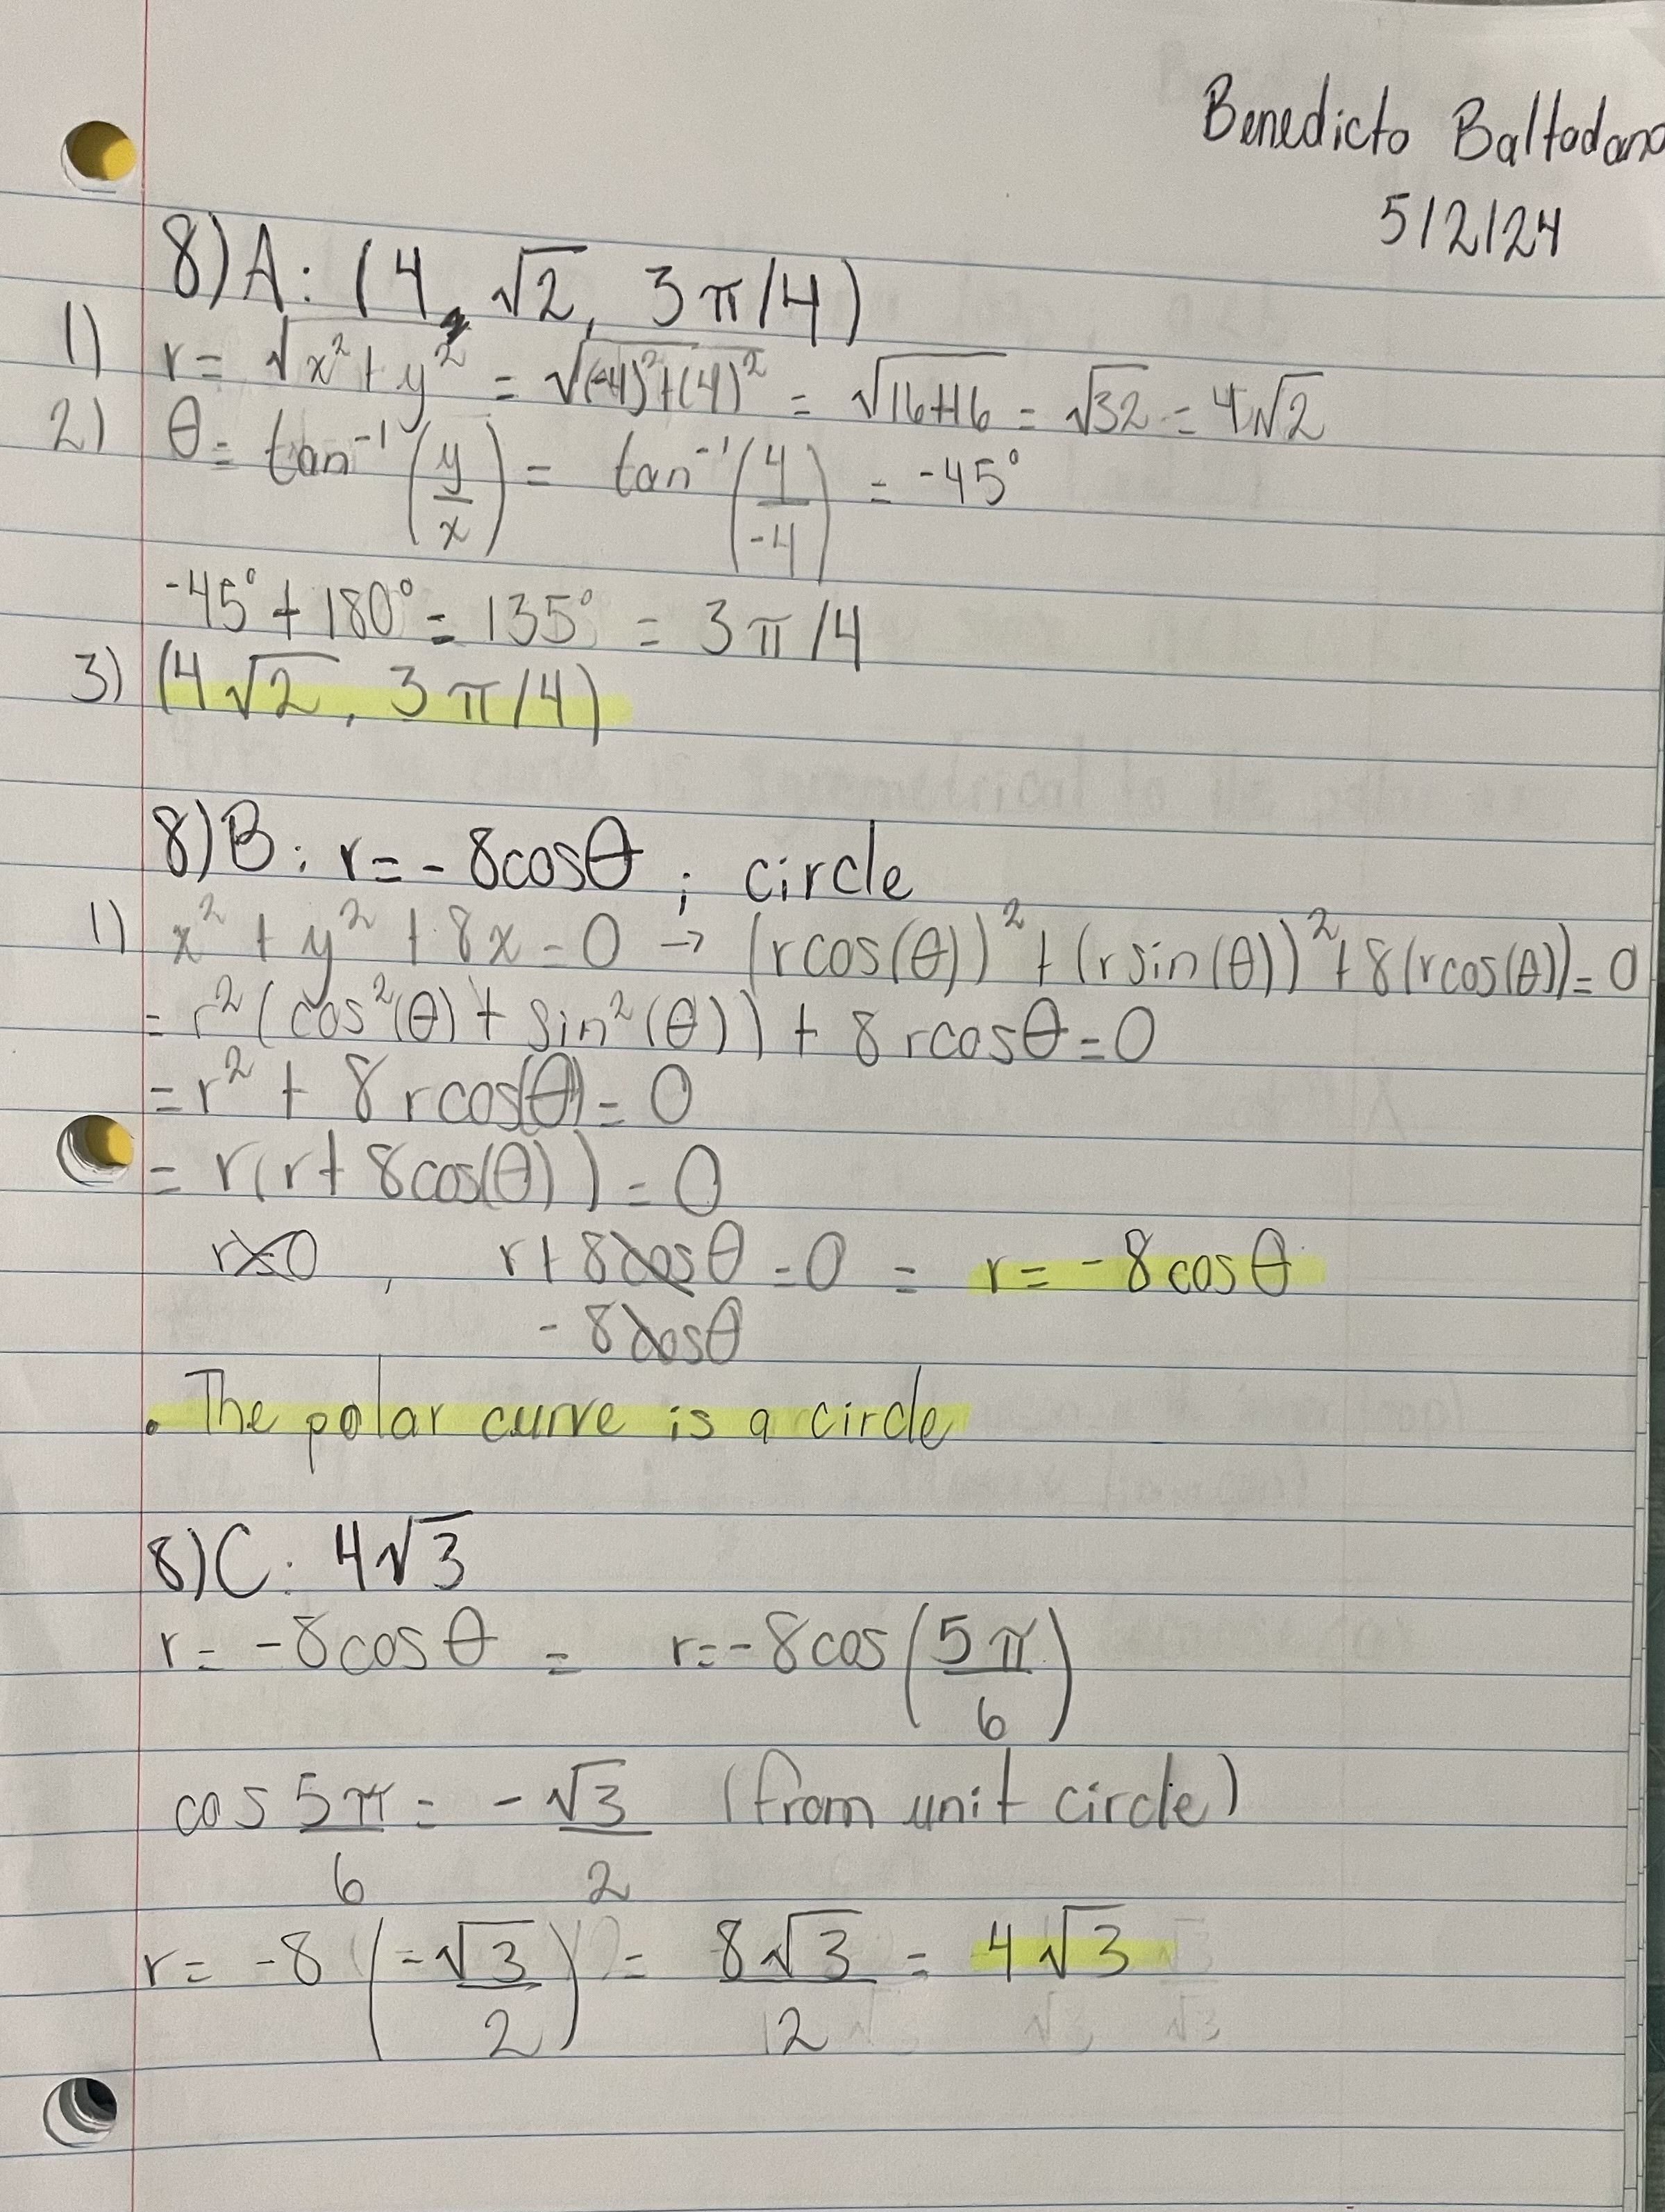 Benedicto Baltodano
5/2/24
8)A: (4, √2, 3π/4)
1) r = √x²+y² = √(-4)²+(4)² = √16+16 = √32 = 4√2
2) θ = tan⁻¹(y/x) = tan⁻¹(4/-4) = -45°
-45° + 180° = 135° = 3π/4
3) (4√2, 3π/4)
8)B: r = -8cosθ ; circle
1) x² + y² + 8x = 0 → (rcos(θ))² + (rsin(θ))² + 8(rcos(θ)) = 0
= r²(cos²(θ) + sin²(θ)) + 8rcosθ = 0
= r² + 8rcos(θ) = 0
= r(r + 8cos(θ)) = 0
r=0 , r + 8cosθ = 0 = r = -8cosθ
-8cosθ
• The polar curve is a circle
8)C: 4√3
r = -8cosθ = r = -8cos(5π/6)
cos 5π/6 = -√3/2 (from unit circle)
r = -8(-√3/2) = 8√3/2 = 4√3